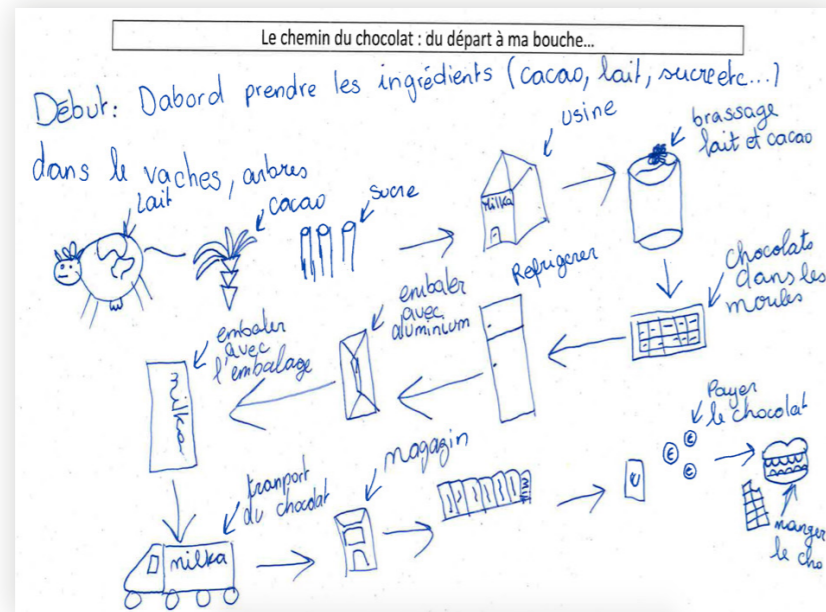 Le chemin du chocolat : du départ à ma bouche...
Début: Dabord prendre les ingrédients (cacao, lait, sucre etc...)
dans le vaches, arbres
lait
cacao
sucre
usine
milka
brassage
lait et cacao
chocolats
dans les
moules
Refrigerer
embaler
avec
aluminium
embaler
avec
l'embalage
milka
tranport
du chocolat
milka
magazin
Payer
le chocolat
€
€
€
manger
le cho